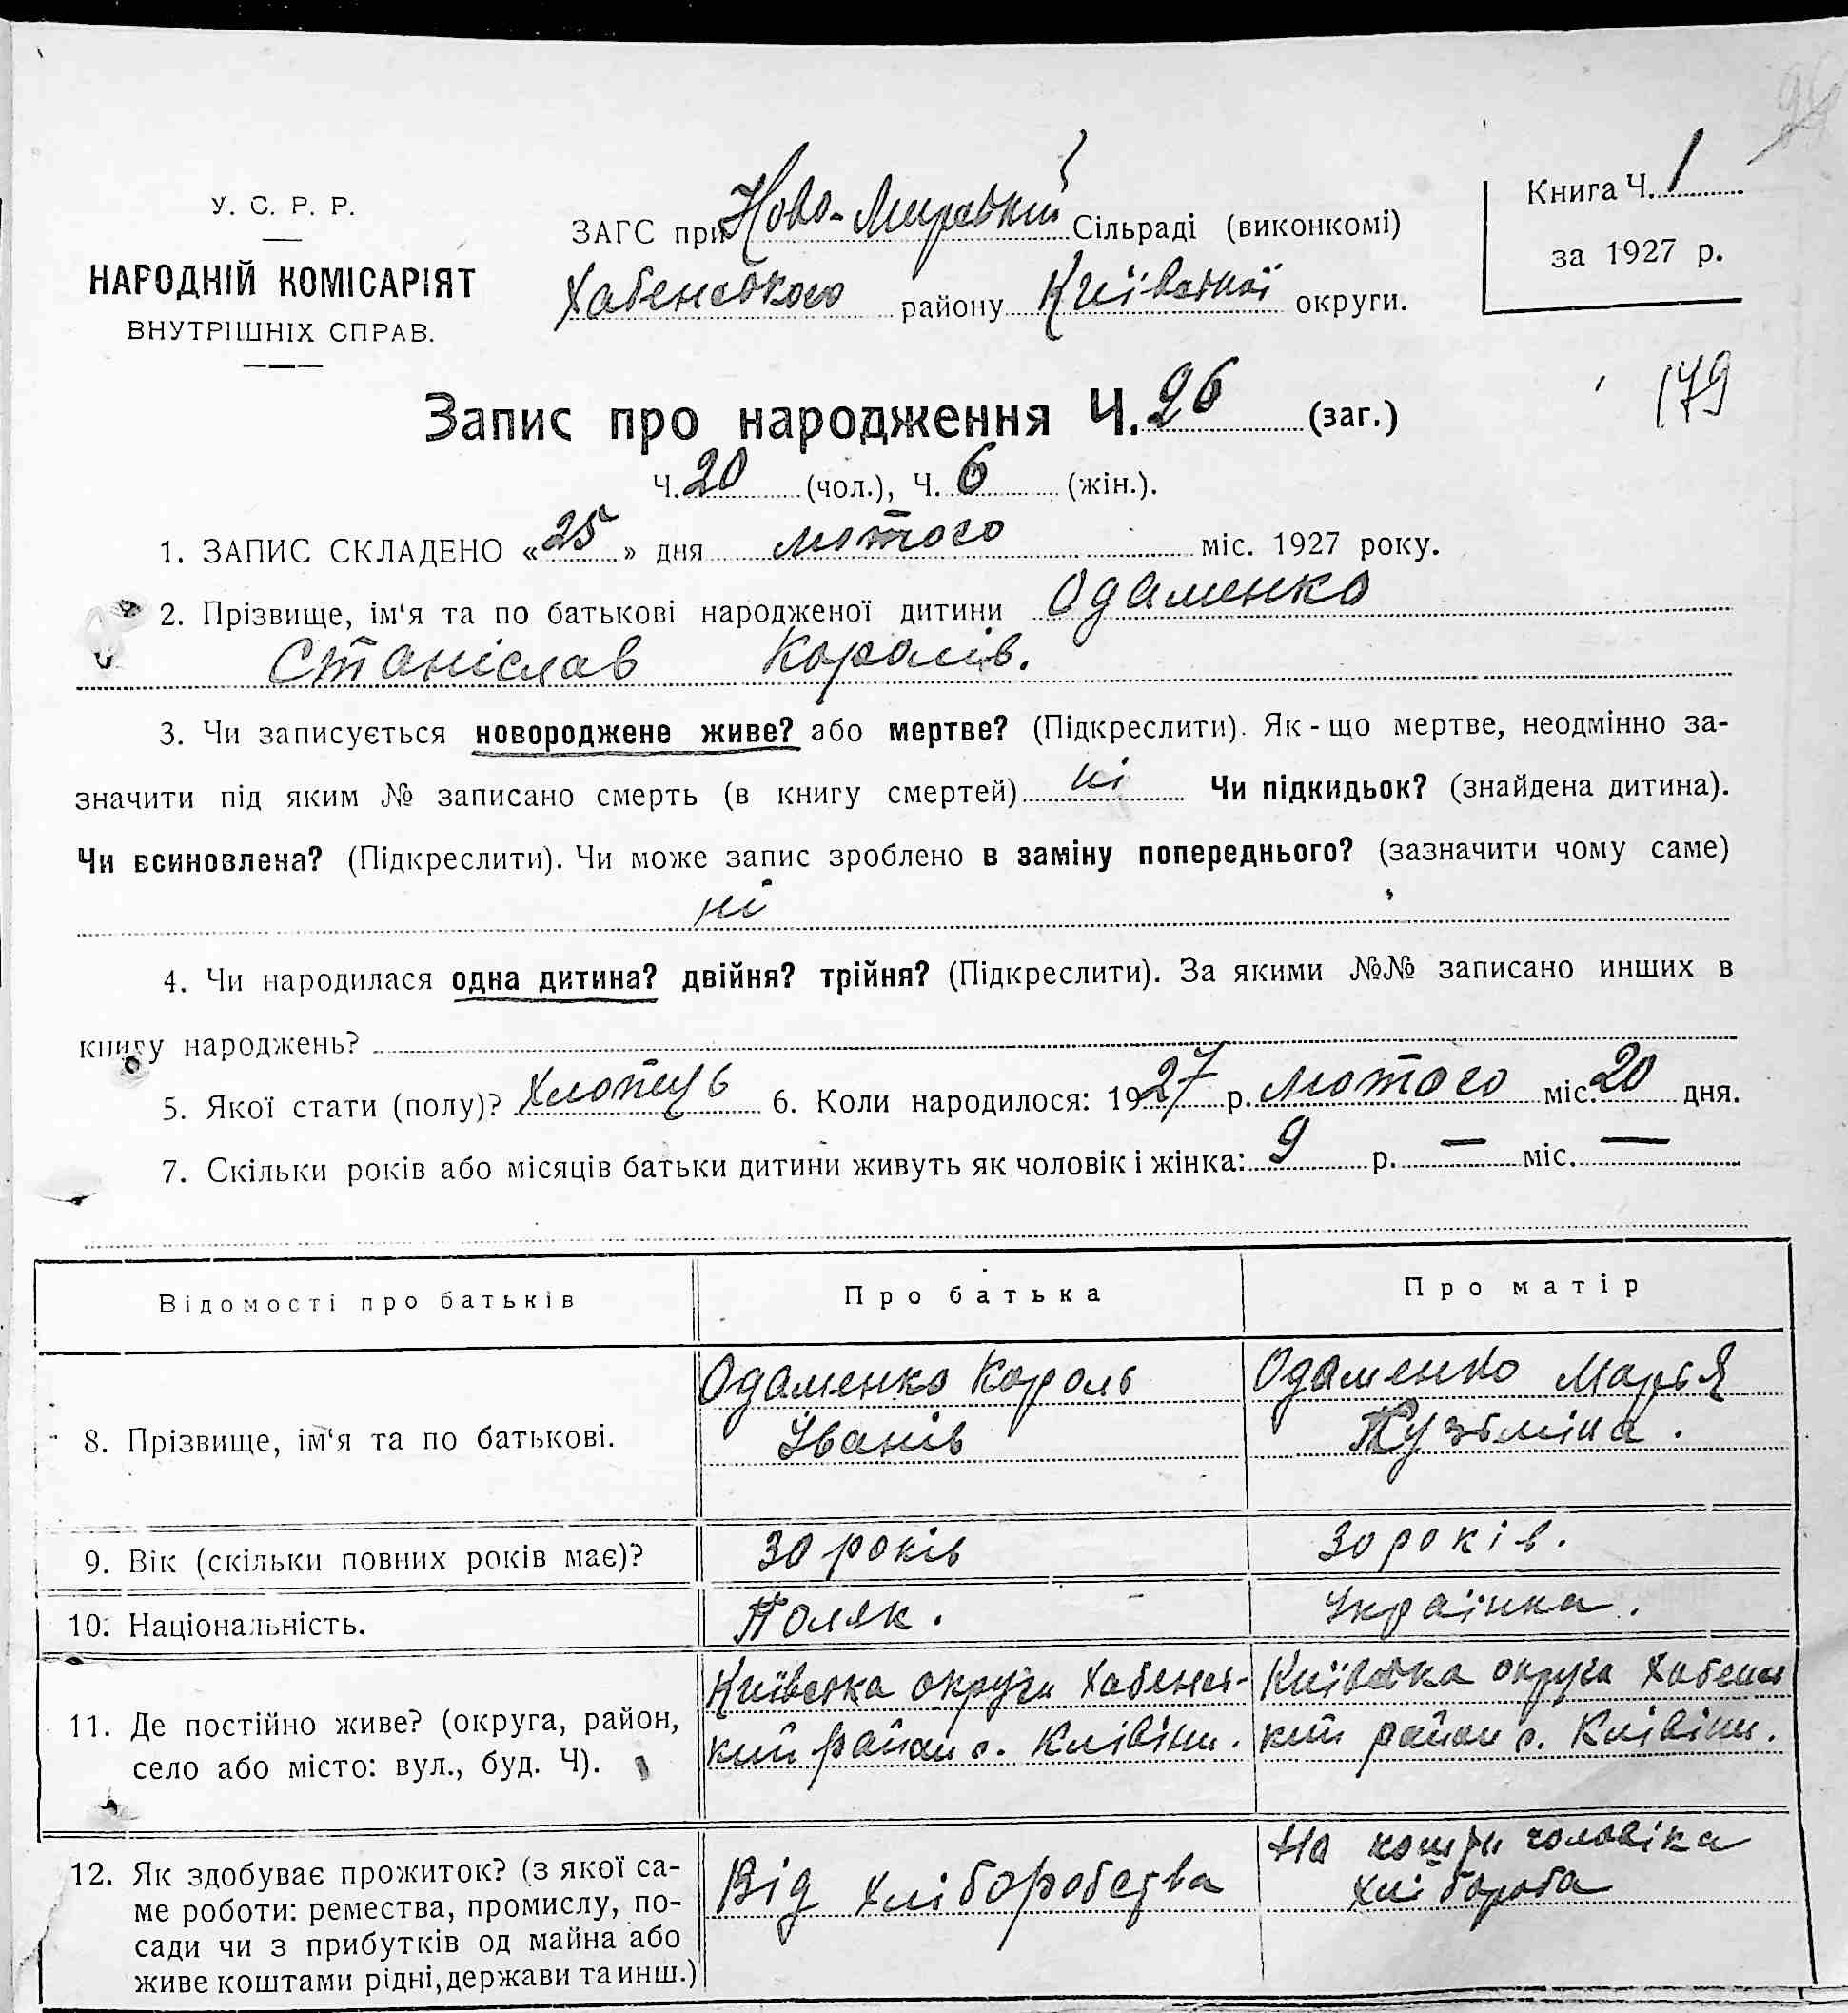 У. С. Р. Р.
НАРОДНІЙ КОМІСАРІЯТ
ВНУТРІШНІХ СПРАВ.
ЗАГС при Ново-Мирській Сільраді (виконкомі)
Хабенського району Київської округи.
Книга Ч. 1
за 1927 р.
179
Запис про народження Ч. 26 (заг.)
Ч. 20 (чол.), Ч. 6 (жін.).
1. ЗАПИС СКЛАДЕНО «25» дня лютого міс. 1927 року.
2. Прізвище, ім‘я та по батькові народженої дитини Одаменко
Станіслав Королів.
3. Чи записується новороджене живе? або мертве? (Підкреслити). Як-що мертве, неодмінно за-
значити під яким № записано смерть (в книгу смертей) ні Чи підкидьок? (знайдена дитина).
Чи всиновлена? (Підкреслити). Чи може запис зроблено в заміну попереднього? (зазначити чому саме)
ні
4. Чи народилася одна дитина? двійня? трійня? (Підкреслити). За якими №№ записано инших в
книгу народжень?
5. Якої стати (полу)? Хлопець 6. Коли народилося: 1927 р. лютого міс. 20 дня.
7. Скільки років або місяців батьки дитини живуть як чоловік і жінка: 9 р. — міс. —
Відомості про батьків Про батька Про матір
8. Прізвище, ім‘я та по батькові.
Одаменко Король
Іванів
Одаменко Марья
Кузьміна.
9. Вік (скільки повних років має)? 30 років 30 років.
10. Національність. Поляк. Українка.
11. Де постійно живе? (округа, район,
село або місто: вул., буд. Ч).
Київська округи Хабенсь-
кий район с. Клівіни.
Київська округа Хабенсь
кий район с. Клівіни.
12. Як здобуває прожиток? (з якої са-
ме роботи: ремества, промислу, по-
сади чи з прибутків од майна або
живе коштами рідні, держави та инш.)
Від хліборобства
На кошти чоловіка
хлібороба